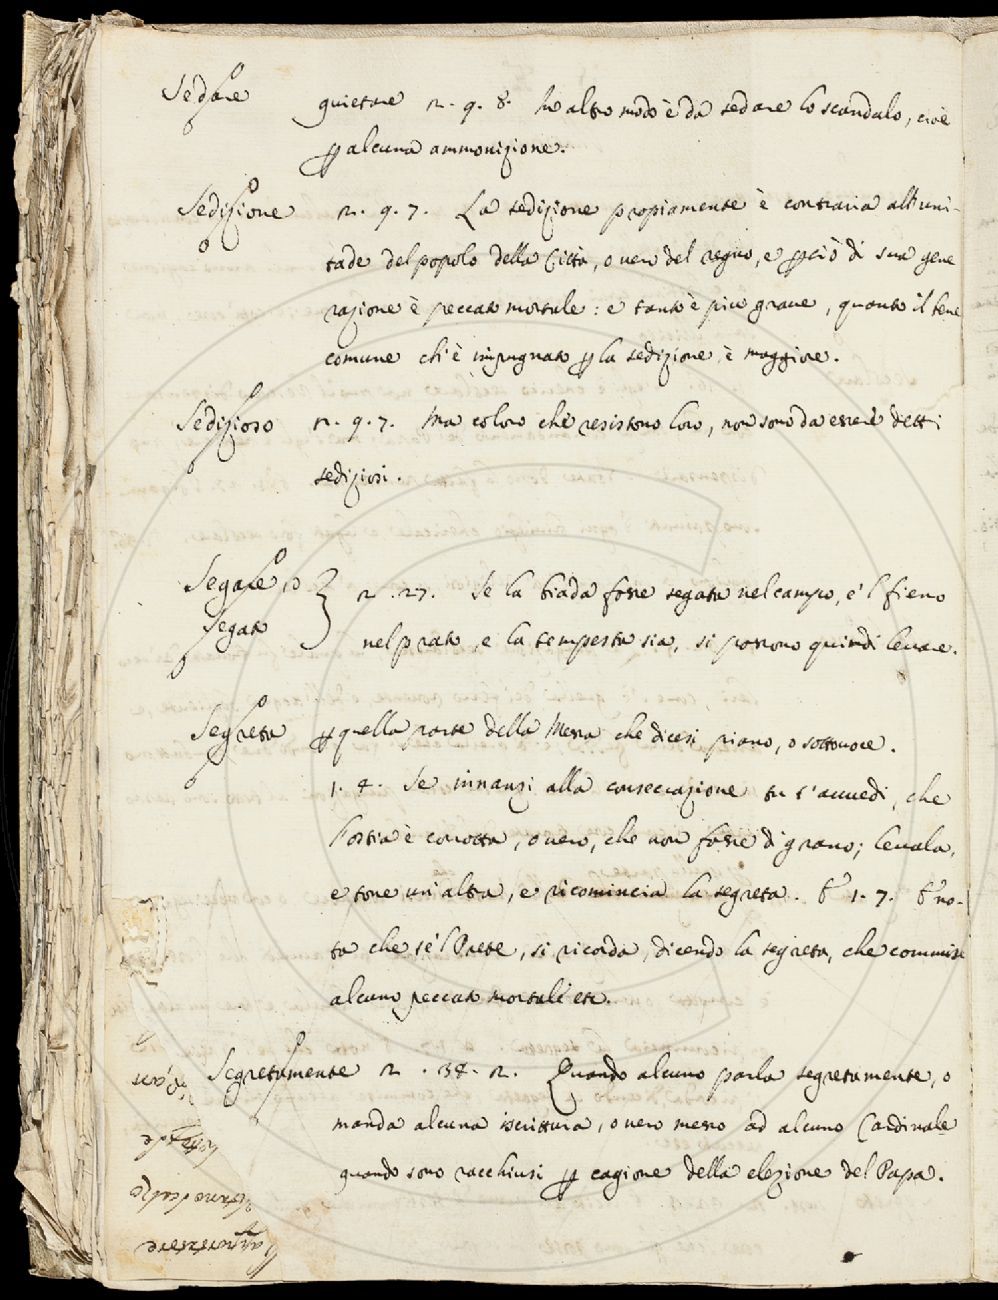 Sedare quietare 2. 9. 8. In altro modo è da sedare lo scandalo, cioè
p alcuna ammonizione.
Sedizione 2. 9. 7. La sedizione propiamente è contraria all'uni-
tade del popolo della Città, overo del regno, e pciò di sua gene
razione è peccato mortale: e tanto è piu grave, quanto il bene
comune ch'è impugnato p la sedizione, è maggiore.
Sedizioso 2. 9. 7. Ma coloro che resistono loro, non sono da essere detti
sediziosi.
Segare, o
Segato
2. 27. Se la biada fosse segata nel campo, e 'l fieno
nel prato, e la tempesta sia, si possono quindi levare.
Segreta p quella parte della Messa che dicesi piano, o sottovoce.
1. 4. Se innanzi alla consecrazione tu t'avvedi, che
l'ostia è corrotta, overo, che non fosse di grano; levala,
e tone un'altra, e ricomincia la segreta. E 1. 7. E no-
ta che se 'l Prete, si ricorda, dicendo la segreta, che commise
alcuno peccato mortale etc.
Segretamente 2. 34. 2. Quando alcuno parla segretamente, o
manda alcuna iscrittura, overo messo ad alcuno Cardinale
quando sono racchiusi p cagione della elezione del Papa.